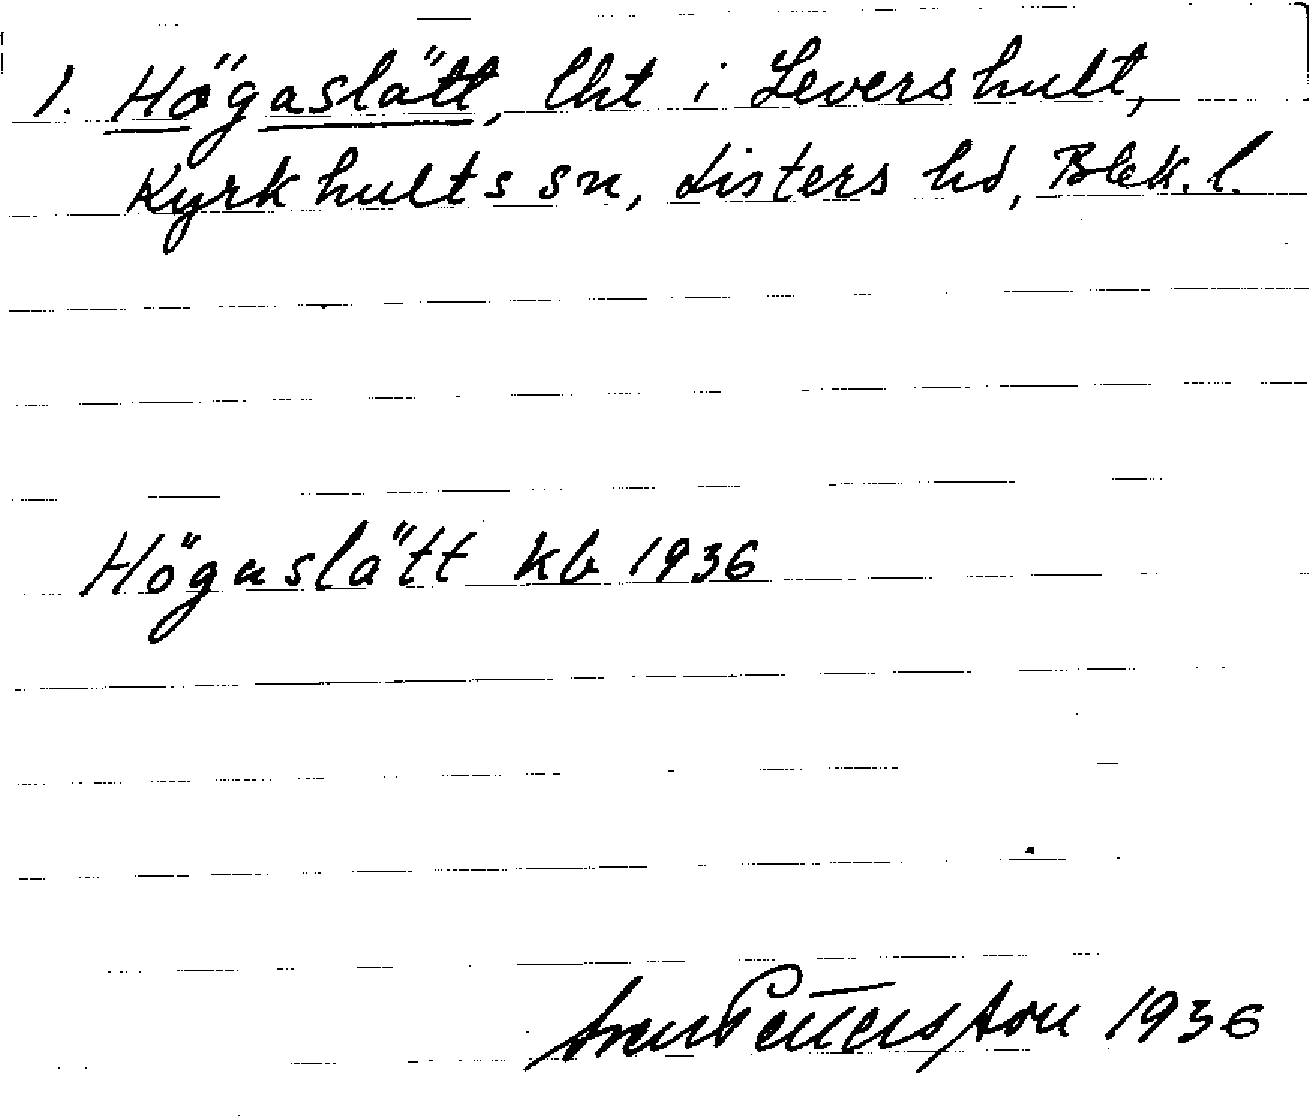 1. Högaslätt, lht i Levershult,
Kyrkhults sn, Listers hd, Blek. l.
Högaslätt kb 1936
Sven Pettersson 1936